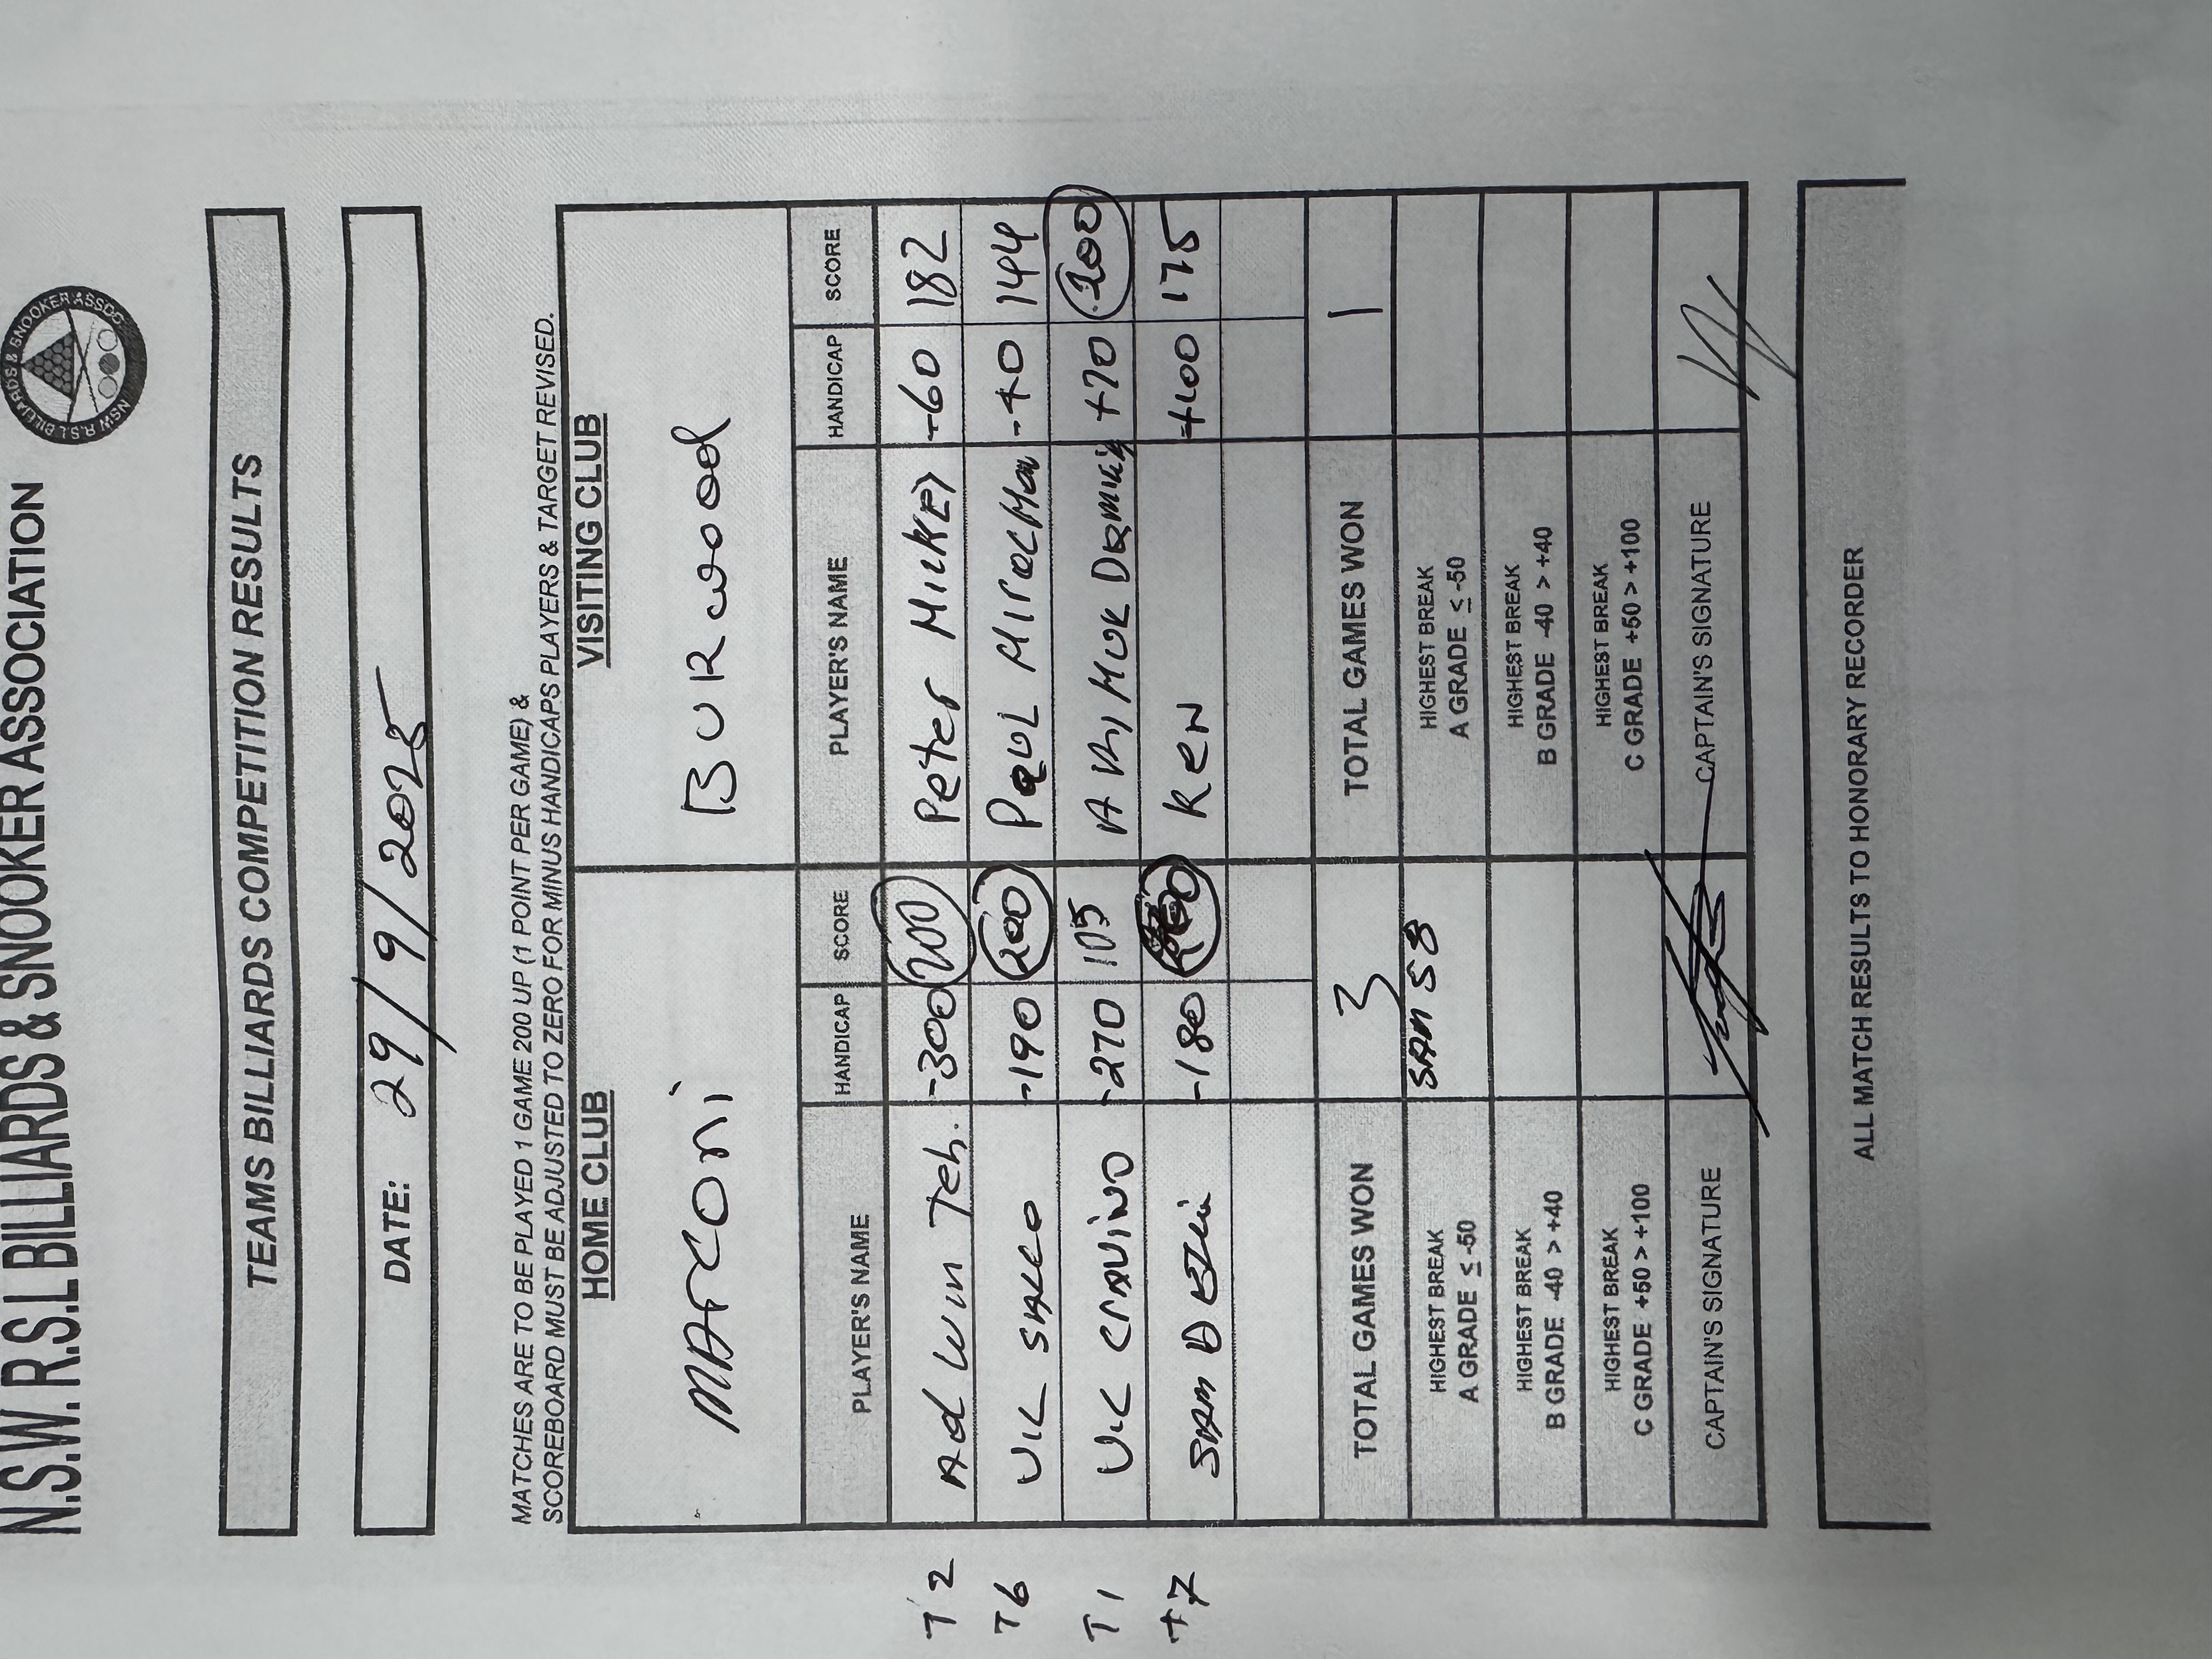 N.S.W. R.S.L BILLIARDS & SNOOKER ASSOCIATION
NSW R.S.L BILLIARDS & SNOOKER ASSOC
TEAMS BILLIARDS COMPETITION RESULTS
DATE: 29/9/2025
MATCHES ARE TO BE PLAYED 1 GAME 200 UP (1 POINT PER GAME) &
SCOREBOARD MUST BE ADJUSTED TO ZERO FOR MINUS HANDICAPS PLAYERS & TARGET REVISED.
HOME CLUB VISITING CLUB
MARCONI BURWOOD
PLAYER'S NAME HANDICAP SCORE PLAYER'S NAME HANDICAP SCORE
T2 Teh. -300 200 Peter -60 182
T6 VIC -190 200 PAUL 144
T1 VIC -270 105 +70 200
T7 SAM -180 Ken +100 175
TOTAL GAMES WON 3 TOTAL GAMES WON 1
HIGHEST BREAK A GRADE ≤ -50 SAM 58 HIGHEST BREAK A GRADE ≤ -50
HIGHEST BREAK B GRADE -40 > +40 HIGHEST BREAK B GRADE -40 > +40
HIGHEST BREAK C GRADE +50 > +100 HIGHEST BREAK C GRADE +50 > +100
CAPTAIN'S SIGNATURE CAPTAIN'S SIGNATURE
ALL MATCH RESULTS TO HONORARY RECORDER